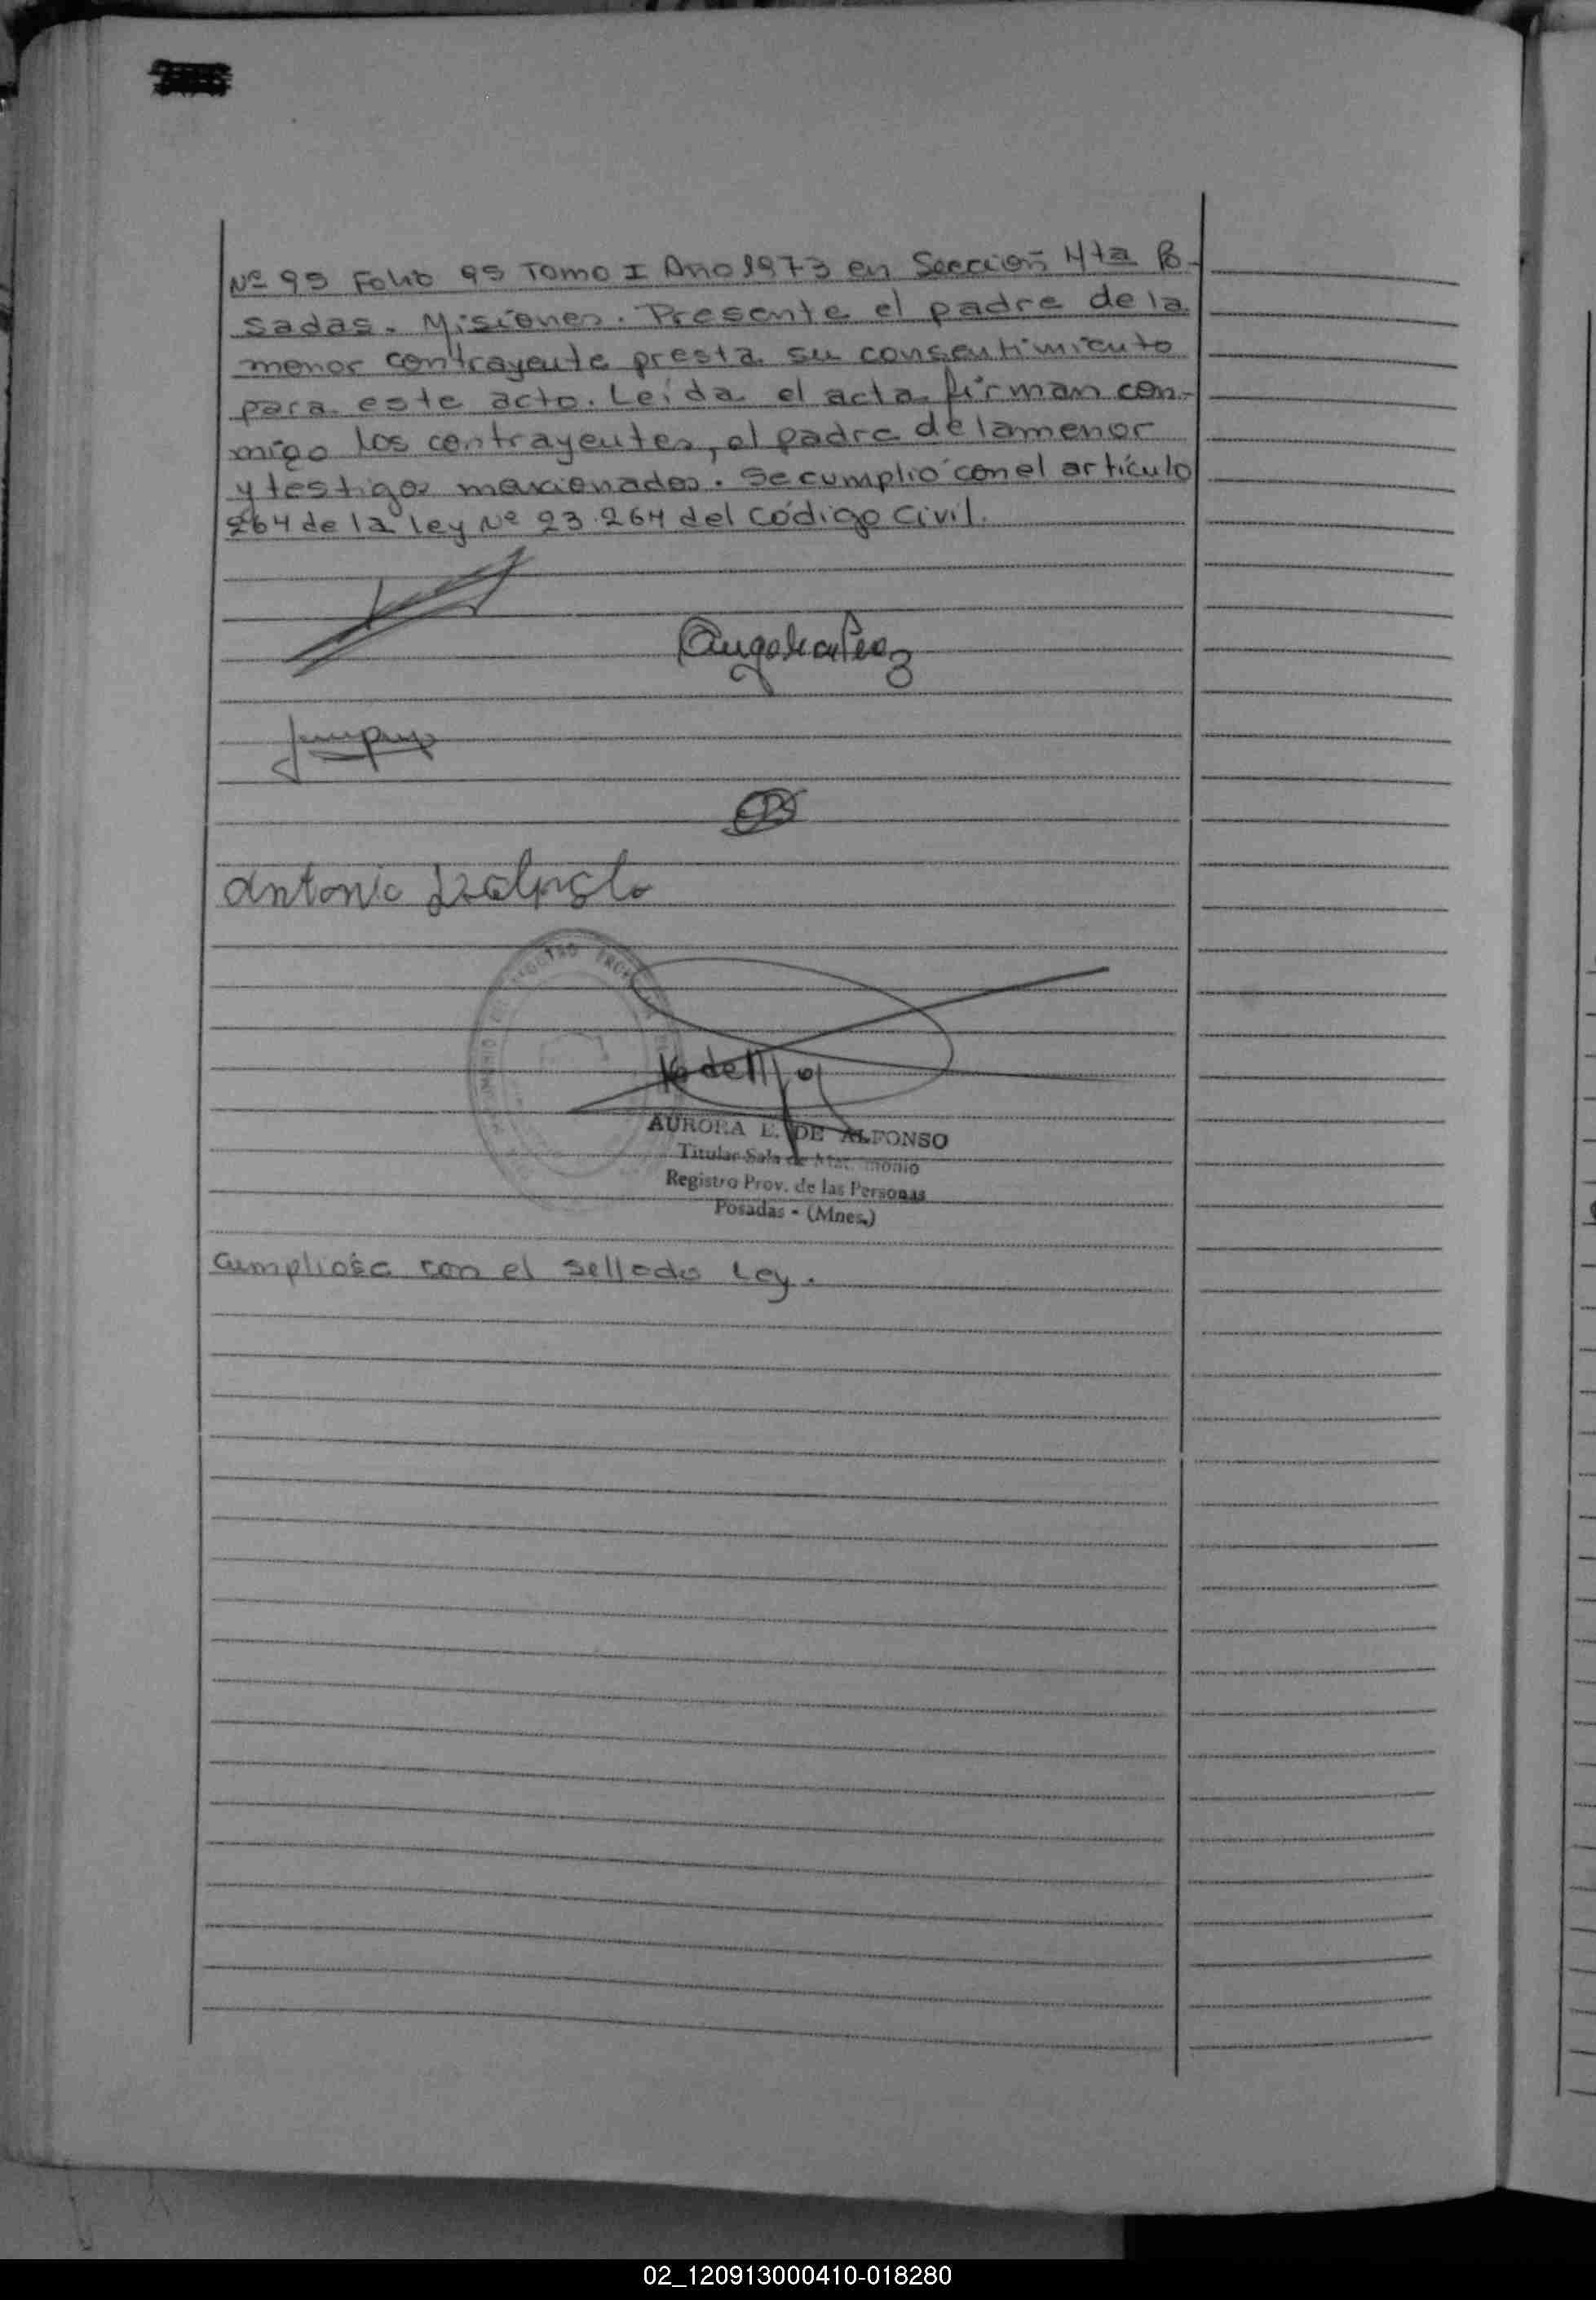 Nº 95 Folio 95 Tomo I Año 1973 en Sección 4ta Po-
sadas. Misiones. Presente el padre de la
menor contrayente presta su consentimiento
para este acto. Leída el acta firman con-
migo los contrayentes, el padre de la menor
y testigos mencionados. Se cumplió con el artículo
264 de la Ley Nº 23.264 del Código Civil.
Antonio
AURORA E. DE ALFONSO
Titular Sala de Matrimonio
Registro Prov. de las Personas
Posadas - (Mnes.)
Cumpliose con el sellado Ley.
02_120913000410-018280